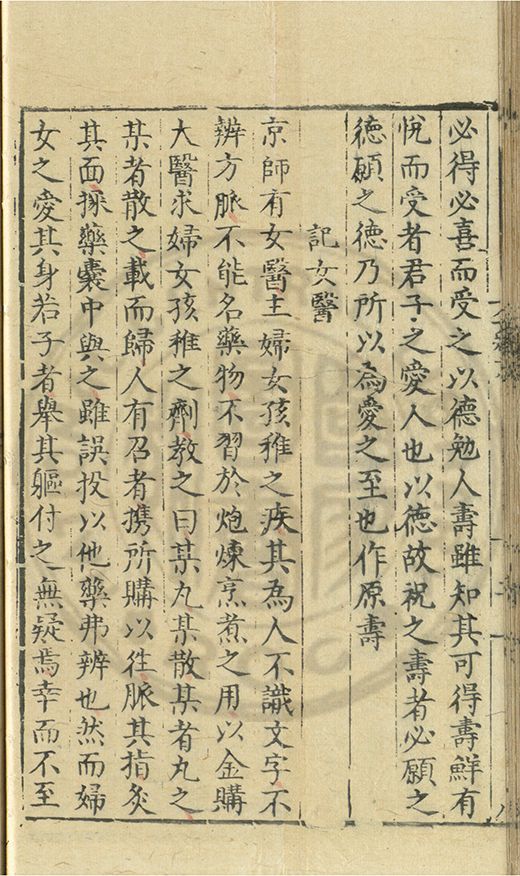 必得必喜而受之以德勉人壽雖知其可得壽鮮有
悅而受者君子之愛人也以德故祝之壽者必願之
德願之德乃所以為愛之至也作原壽
記女醫
京師有女醫主婦女孩稚之疾其為人不識文字不
辨方脈不能名藥物不習於炮煉烹煮之用以金購
大醫求婦女孩稚之劑教之曰某丸某散某者丸之
某者散之載而歸人有召者携所購以往脈其指灸
其面探藥囊中與之雖誤投以他藥弗辨也然而婦
女之愛其身若子者舉其軀付之無疑焉幸而不至